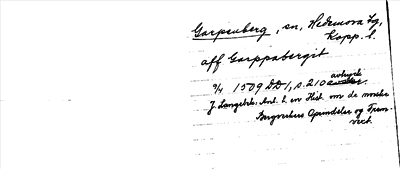 Garpenberg, sn, Hedemora tg,
Kopp. l.
aff Garppabergit
3/4 1509 DD 1, s. 210 avtryck
J. Langebek: Anl. t. en Hist. om de norske
Bergverkers Oprindelse og Frem-
vext.